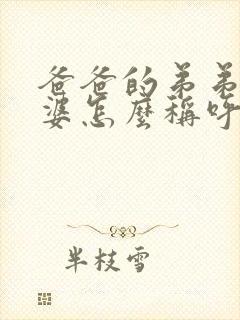 爸爸的弟弟
婆怎麼稱呼
半枝雪